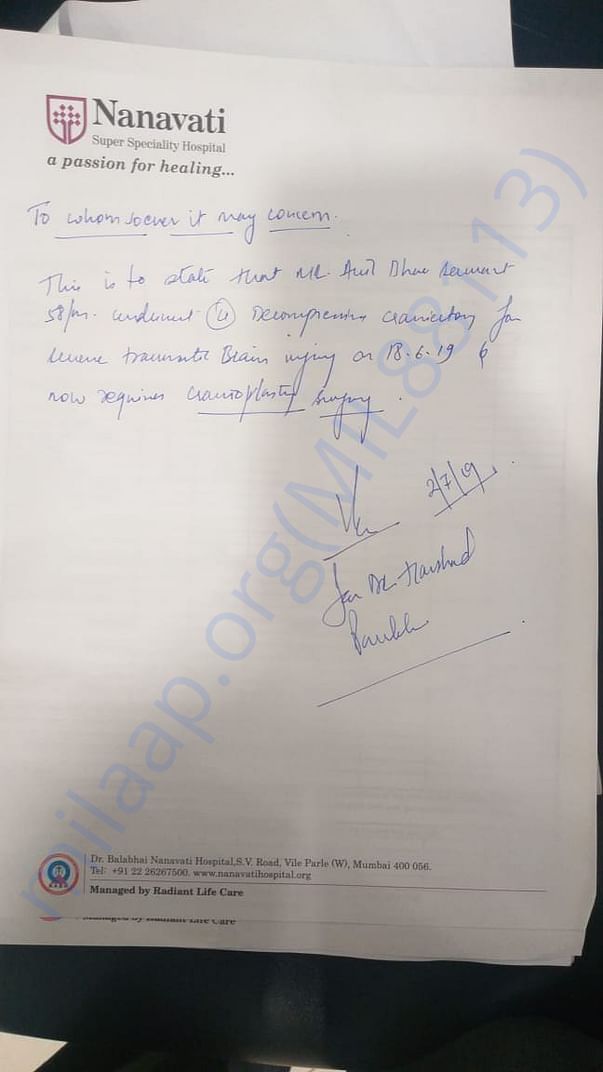 Nanavati
Super Speciality Hospital
a passion for healing...
To whomsoever it may concern.
This is to state that Mr. Anil Bhau
58/m. underwent (Lt) Decompressive craniectomy for
severe traumatic Brain injury on 18.6.19 &
now requires cranioplasty surgery.
2/7/19.
for Dr. Harshad
Parekh
milaap.org(MIL88113)
Dr. Balabhai Nanavati Hospital,S.V. Road, Vile Parle (W), Mumbai 400 056.
Tel: +91 22 26267500. www.nanavatihospital.org
Managed by Radiant Life Care
Managed by Radiant Life Care